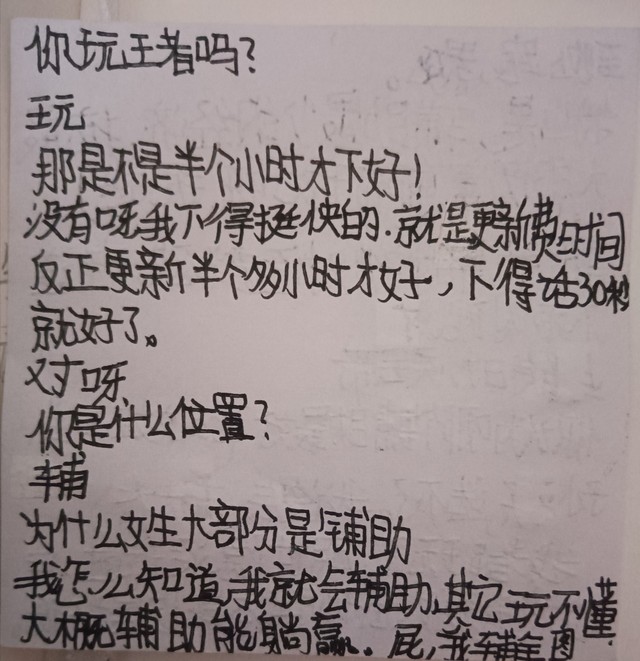 你玩王者吗?
玩
那是不是半个小时才下好!
没有呀我下得挺快的.就是更新费时间
反正更新半个多小时才好,下得话30秒
就好了。
对呀
你是什么位置?
辅
为什么女生大部分是辅助
我怎么知道,我就会辅助,其它玩不懂.
大概辅助能躺赢。屁,我辅